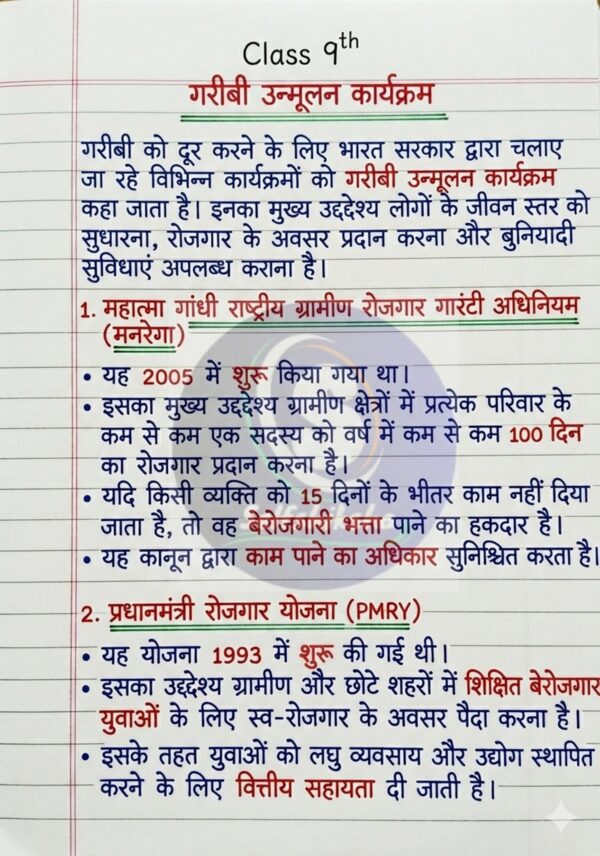 Class 9th
गरीबी उन्मूलन कार्यक्रम
गरीबी को दूर करने के लिए भारत सरकार द्वारा चलाए
जा रहे विभिन्न कार्यक्रमों को गरीबी उन्मूलन कार्यक्रम
कहा जाता है। इनका मुख्य उद्दद्देश्य लोगों के जीवन स्तर को
सुधारना, रोजगार के अवसर प्रदान करना और बुनियादी
सुविधाएं अपलब्ध कराना है।
1. महात्मा गांधी राष्ट्रीय ग्रामीण रोजगार गारंटी अधिनियम
(मनरेगा)
• यह 2005 में शुरू किया गया था।
• इसका मुख्य उद्दद्देश्य ग्रामीण क्षेत्रों में प्रत्येक परिवार के
कम से कम एक सदस्य को वर्ष में कम से कम 100 दिन
का रोजगार प्रदान करना है।
• यदि किसी व्यक्ति को 15 दिनों के भीतर काम नहीं दिया
जाता है, तो वह बेरोजगारी भत्ता पाने का हकदार है।
• यह कानून द्वारा काम पाने का अधिकार सुनिश्चित करता है।
2. प्रधानमंत्री रोजगार योजना (PMRY)
• यह योजना 1993 में शुरू की गई थी।
• इसका उद्दद्देश्य ग्रामीण और छोटे शहरों में शिक्षित बेरोजगार
युवाओं के लिए स्व-रोजगार के अवसर पैदा करना है।
• इसके तहत युवाओं को लघु व्यवसाय और उद्योग स्थापित
करने के लिए वित्तीय सहायता दी जाती है।